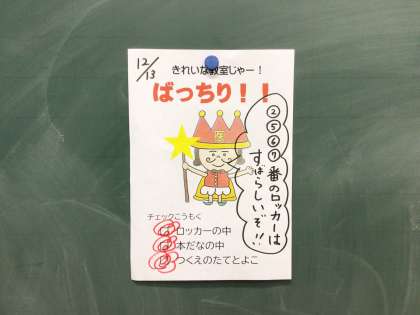 12/13
きれいな教室じゃー！
ばっちり！！
②⑤⑥⑦番のロッカーは
すばらしいぞ!!
チェックこうもく
ロッカーの中
本だなの中
つくえのたてとよこ